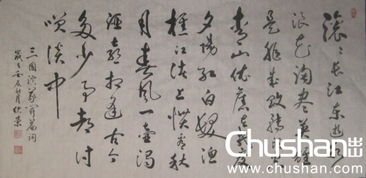 滚〻长江东逝水
浪花淘尽英雄
是非成败转头空
青山依旧在几度
夕阳红白发渔
樵江渚上惯看秋
月春风一壶浊
酒喜相逢古今
多少事都付
笑谈中
三国演义开篇词
Chushan.com